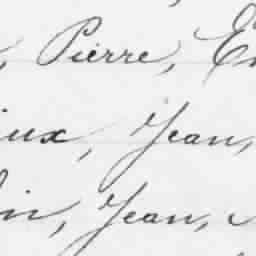 , Pierre, E
ux, Jean,
in, Jean,